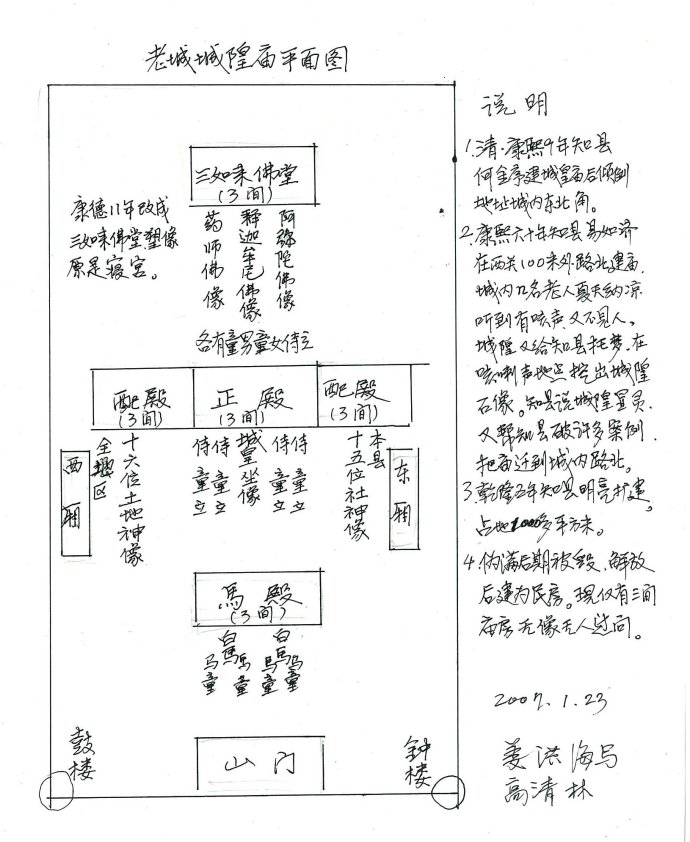 老城城隍庙平面图
三如来佛堂
(3间)
康德11年改成
三如来佛堂塑像
原是寝宫。
药师佛像
释迦牟尼佛像
阿弥陀佛像
各有童男童女侍立
配殿
(3间)
正殿
(3间)
配殿
(3间)
西厢
全县区
十六位土地神像
侍童立
侍童立
城皇坐像
侍童立
侍童立
本县
十五位社神像
东厢
馬殿
(3间)
白馬
马童
马童
白马
马童
马童
鼓楼
山门
钟楼
说明
1.清.康熙9年知县
何金序建城皇庙后倾倒
地址城内东北角。
2.康熙六十年知县易如济
在西关100米外.路北建庙.
城内几名老人夏天纳凉
听到有咳声又不见人。
城隍又给知县托梦.在
咳嗽声地点挖出城隍
石像。知县说城隍显灵.
又帮知县破许多案例.
把庙迁到城内路北。
3.乾隆五年知县明亮扩建.
占地1000多平方米。
4.伪满后期被毁.解放
后建为民房。现仅有三间
庙房无像无人过问。
2007.1.23
姜洪海写
高清林